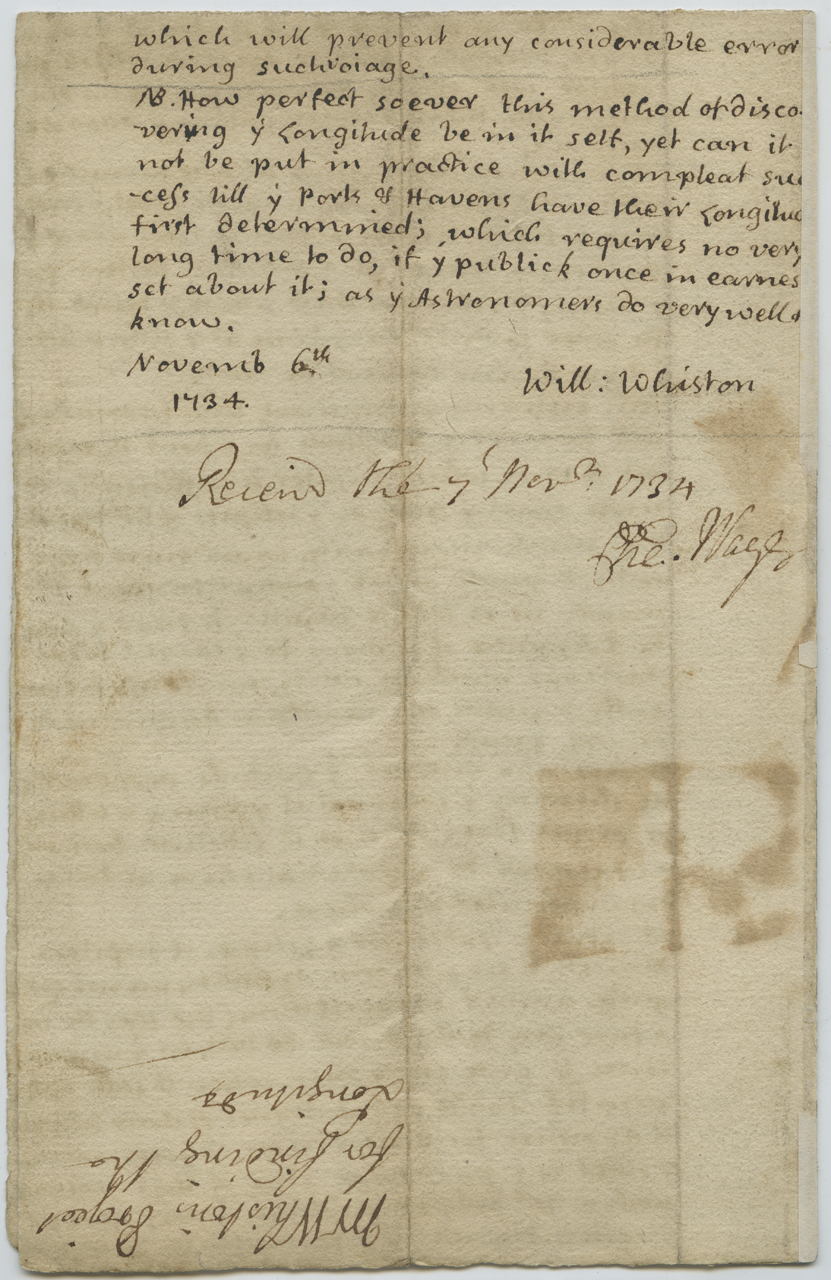 which will prevent any considerable error
during such voiage.
NB. How perfect soever this method of disco-
vering ẏ Longitude be in it self, yet can it
not be put in practice with compleat suc
-cess till ẏ Ports & Havens have their Longitud
first determined; which requires no very
long time to do, if ẏ publick once in earnes
set about it; as ẏ Astronomers do very well
know.
Novemb 6.th
1734.
Will: Whiston
Receivd the 7 Novr. 1734
Cha. Wager
Mr Whiston's Project
for finding the
Longitude